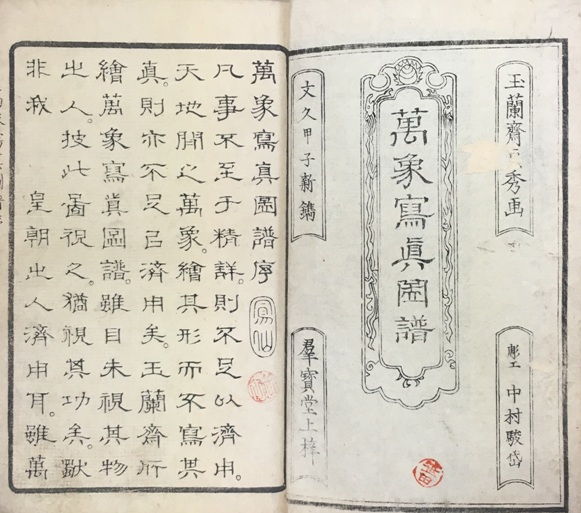 玉蘭齋秀画
彫工 中村駿岱
萬象寫眞圖譜
文久甲子新鐫
羣寶堂上梓
萬象寫真圖譜序
凡事不至于精詳。則不足以濟用。
天地間之萬象。繪其形而不寫其
真。則亦不足㠯濟用矣。玉蘭齋所
繪萬象寫眞圖譜。雖目未視其物
㞢人。披此圖視之。猶視其功矣。
非我 皇朝㞢人濟用耳。雖萬